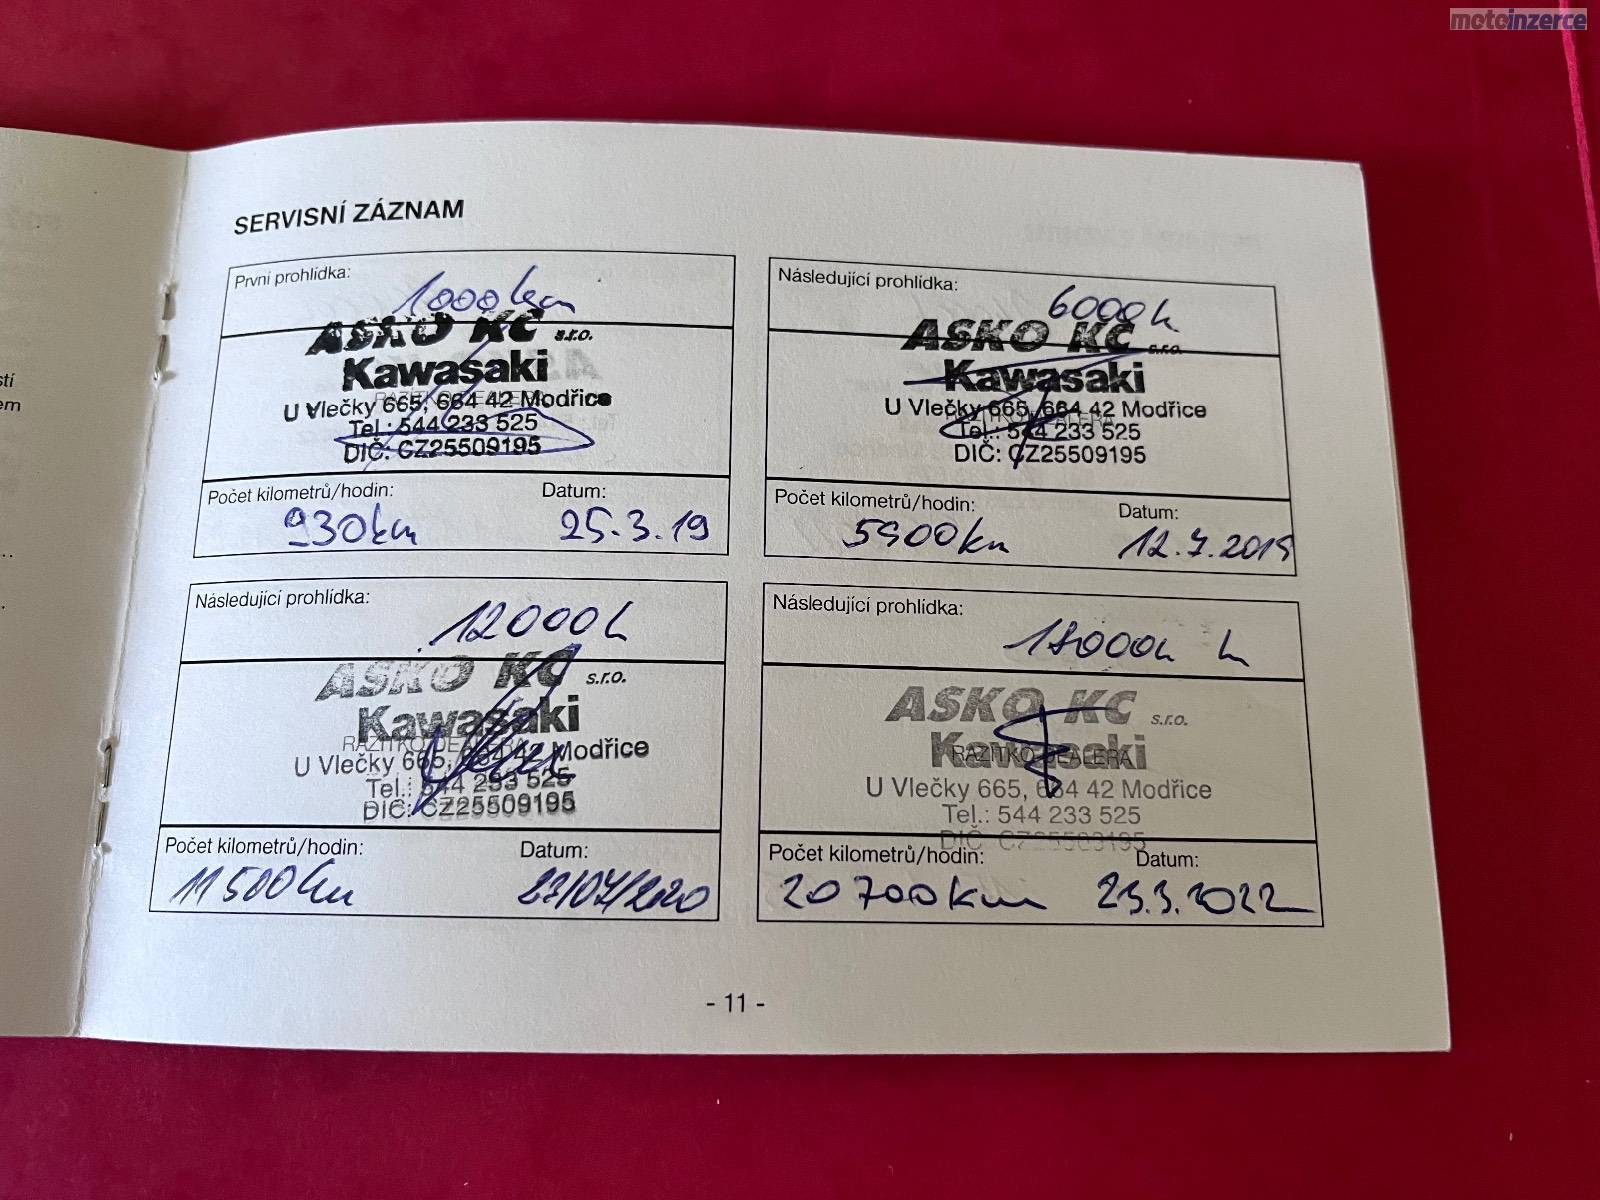 motoinzerce
stí
em
SERVISNÍ ZÁZNAM
První prohlídka: 1000 km
ASKO KC s.r.o.
Kawasaki
RAZÍTKO DEALERA
U Vlečky 665, 664 42 Modřice
Tel.: 544 233 525
DIČ: CZ25509195
Počet kilometrů/hodin: Datum:
930km 25.3.19
Následující prohlídka: 6000k
ASKO KC s.r.o.
Kawasaki
U Vlečky 665, 664 42 Modřice
RAZÍTKO DEALERA
Tel.: 544 233 525
DIČ: CZ25509195
Počet kilometrů/hodin: Datum:
5900km 12.7.2019
Následující prohlídka: 12000k
ASKO KC s.r.o.
Kawasaki
RAZÍTKO DEALERA
U Vlečky 665, 664 42 Modřice
Tel.: 544 233 525
DIČ: CZ25509195
Počet kilometrů/hodin: Datum:
11500km /07/2020
Následující prohlídka: 18000k
ASKO KC s.r.o.
Kawasaki
RAZÍTKO DEALERA
U Vlečky 665, 664 42 Modřice
Tel.: 544 233 525
DIČ: CZ25509195
Počet kilometrů/hodin: Datum:
20700km 23.3.2022
- 11 -